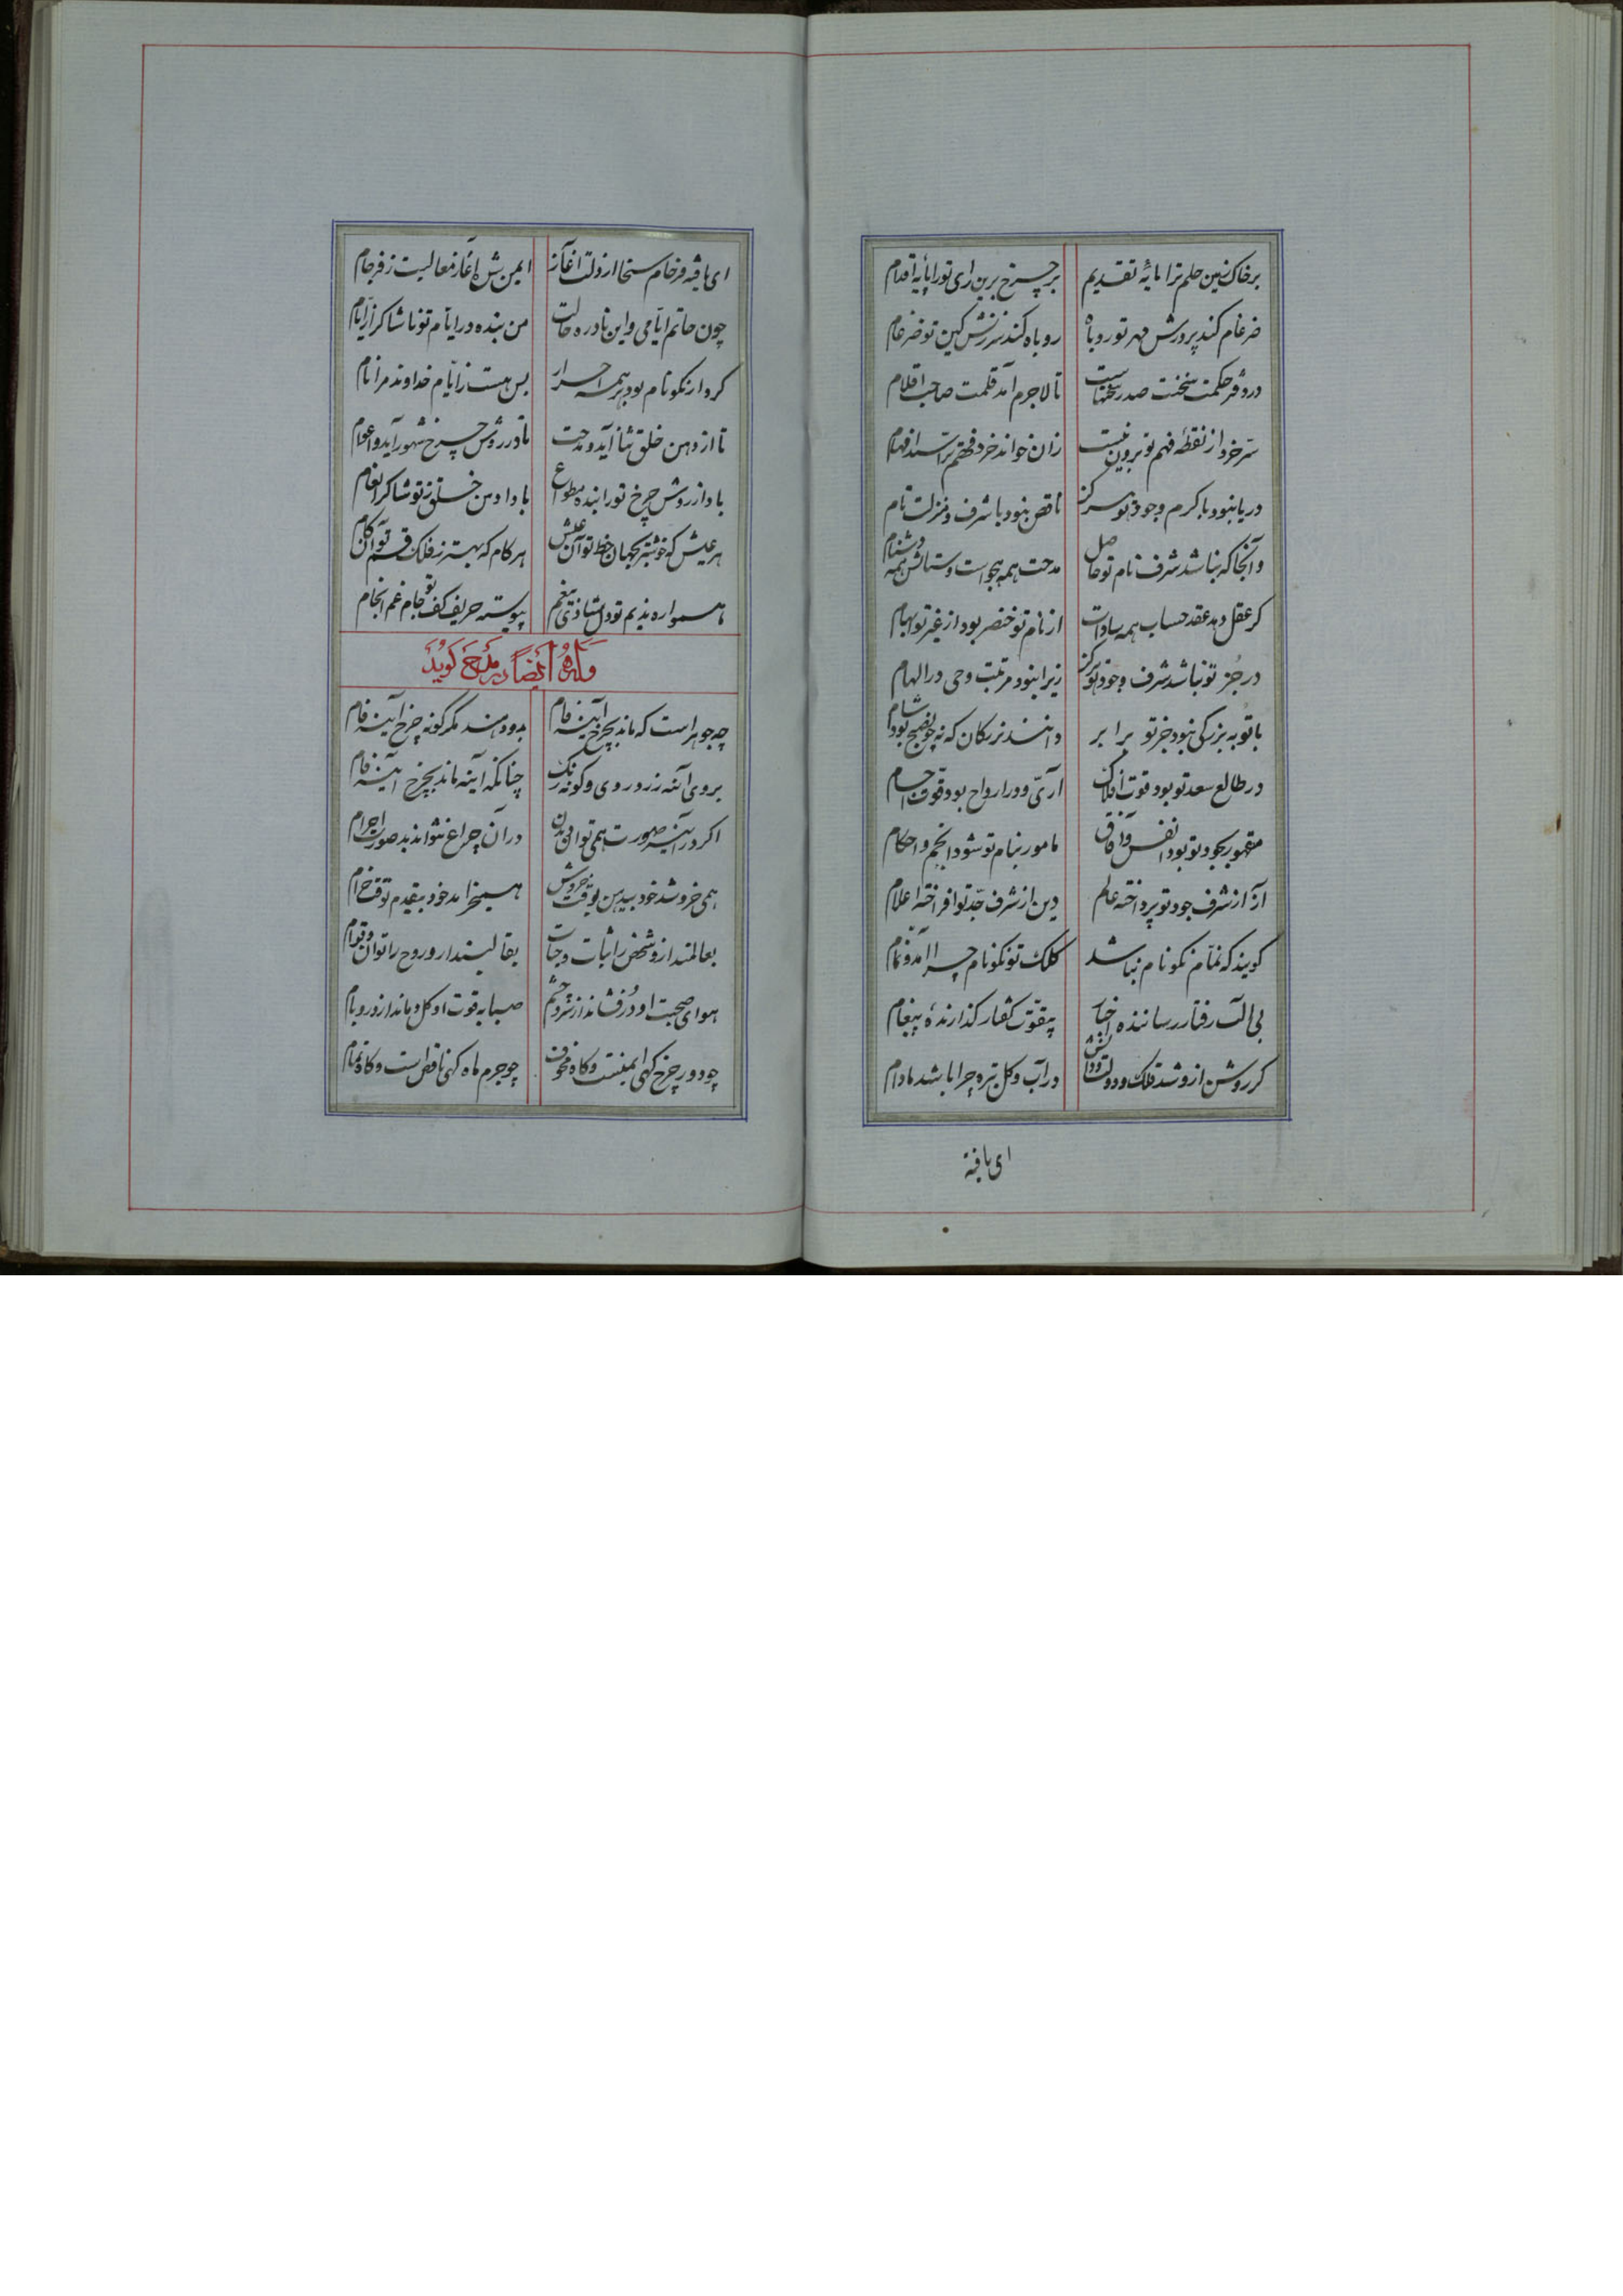 برخاک زمین حلم ترا مایهٔ تقدیم برچرخ برین رای تو را پایهٔ اقدام
ضرغام کند پرورش مهر تو روباه روباه کند سرزنش کین تو ضرغام
در دفتر حکمت سخنت صدر سخنهاست تا لاجرم آمد قلمت صاحب اقلام
سرّ خرد از نقطهٔ فهم تو برون نیست زان خواند خرد فهم ترا سید افهام
دریا نبود با کرم وجود تو هرگز ناقص نبود با شرف و منزلت تام
وآنجا که نباشد شرف نام تو حاصل مدحت همه هجو است و ستایش همه دشنام
کر عقل دهد عقد حساب همه سادات از نام تو خنصر بود از غیر تو ابهام
در جز تو نباشد شرف وجود تو هرگز زیرا نبود مرتبت وحی در الهام
با تو به بزرگی نبود جز تو برابر دانند بزرگان که نه چون صبح بود شام
در طالع سعد تو بود قوت افلاک آری و در ارواح بود قوت اجسام
مقهور بجود تو بود انفس و آفاق مامور بنام تو شود انجم و احکام
آز از شرف جود تو پرداخته عالم دین از شرف جدّ تو افراخته اعلام
کویند که نمّام نکونام نباشد کلک تو نکونام چرا آمد و نمام
بی الت رفتار رساننده اخبار بیقوّت کفتار کذارندهٔ پیغام
کر روشن ازو شد فلک و دولت و دانش در آب و کل تیره چرا باشد مادام
ای یافته
ای یافته فرخام سخا از دلت آغاز ایمن شده آغاز معالیت ز فرجام
چون حاتم ایّامی و این نادره حالت من بنده در ایّام تو ناشاکر از ایّام
کردار نکونام بود بر همه احرار بس هست ز ایّام خداوند مرا نام
تا از دهن خلق ثنا آید و مدحت تا در روش چرخ شهور آید و اعوام
باد از روش چرخ تو را بنده مطواع باد از دهن خلق ز تو شاکر انعام
هر عیش که خوشتر بجهان حظ تو آن عیش هر کام که بهتر ز فلک قسم تو آن کام
همواره ندیم تو دل شاد ز تنعم پیوسته حریف کف تو جام غم انجام
وله ایضاً در مدح کوید
چه جوهر است که ماند بچرخ آینه فام بدو دهند مگر گونه چرخ آینه فام
بروی آینه زرد روی و کونه رنک چنانکه آینه ماند بچرخ آینه فام
اکر در آینه صورت همی توان دیدن در آن چراغ نتواند بد صورت اجرام
همی خروشد خود بیدهن بوقت خروش همیخرامد خود بیقدم بوقت خرام
بعالمند ازو شخص را ثبات و حیات بقالبند ازو روح را توان و قوام
هوای صحبت او درفشاند از نرد چشم صبا به قوت او کل دماند از در و بام
چو دور چرخ کهی ایمنست و کاه مخوف چو جرم ماه کهی ناقص است و کاه تمام